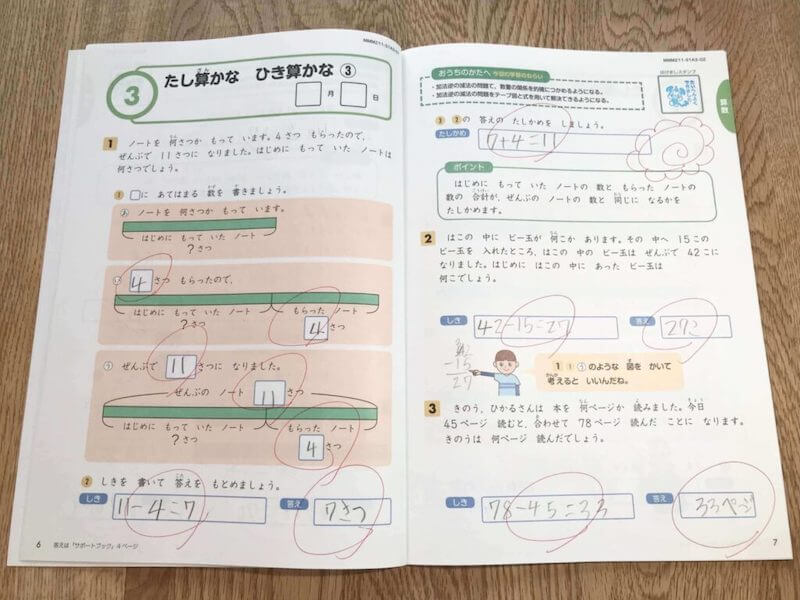 MMM211-S1A3-02
3
たし算かな ひき算かな ③
ざん
月 日
1 ノートを 何さつか もって います。4さつ もらったので、
ぜんぶで 11さつに なりました。はじめに もって いた ノートは
何さつでしょう。
① □に あてはまる 数を 書きましょう。
あ ノートを 何さつか もって います。
はじめに もって いた ノート
?さつ
い 4さつ もらったので、
はじめに もって いた ノート もらった ノート
?さつ 4さつ
う ぜんぶで 11さつに なりました。
ぜんぶの ノート 11さつ
はじめに もって いた ノート もらった ノート
?さつ 4さつ
② しきを 書いて 答えを もとめましょう。
しき 11-4=7 答え 7さつ
6 答えは「サポートブック」4ページ
MMM211-S1A3-02
おうちのかたへ 今回の学習のねらい
・加法逆の減法の問題で、数量の関係を的確につかめるようになる。
・加法逆の減法の問題をテープ図と式を用いて解決できるようになる。
はげましスタンプ
算数
① ②の 答えの たしかめを しましょう。
たしかめ 7+4=11
ポイント
はじめに もって いた ノートの 数と もらった ノートの
数の 合計が、ぜんぶの ノートの 数と 同じに なるかを
たしかめます。
2 はこの 中に ビー玉が 何こか あります。その 中へ 15この
ビー玉を 入れたところ、はこの 中の ビー玉は ぜんぶで 42こに
なりました。はじめに はこの 中に あった ビー玉は
何こでしょう。
しき 42-15=27 答え 27こ
-15
27
1 ① うのような 図を かいて
考えると いいんだね。
3 きのう、ひかるさんは 本を 何ページか 読みました。今日
45ページ 読むと、合わせて 78ページ 読んだ ことに なります。
きのうは 何ページ 読んだでしょう。
しき 78-45=33 答え 33ページ
7